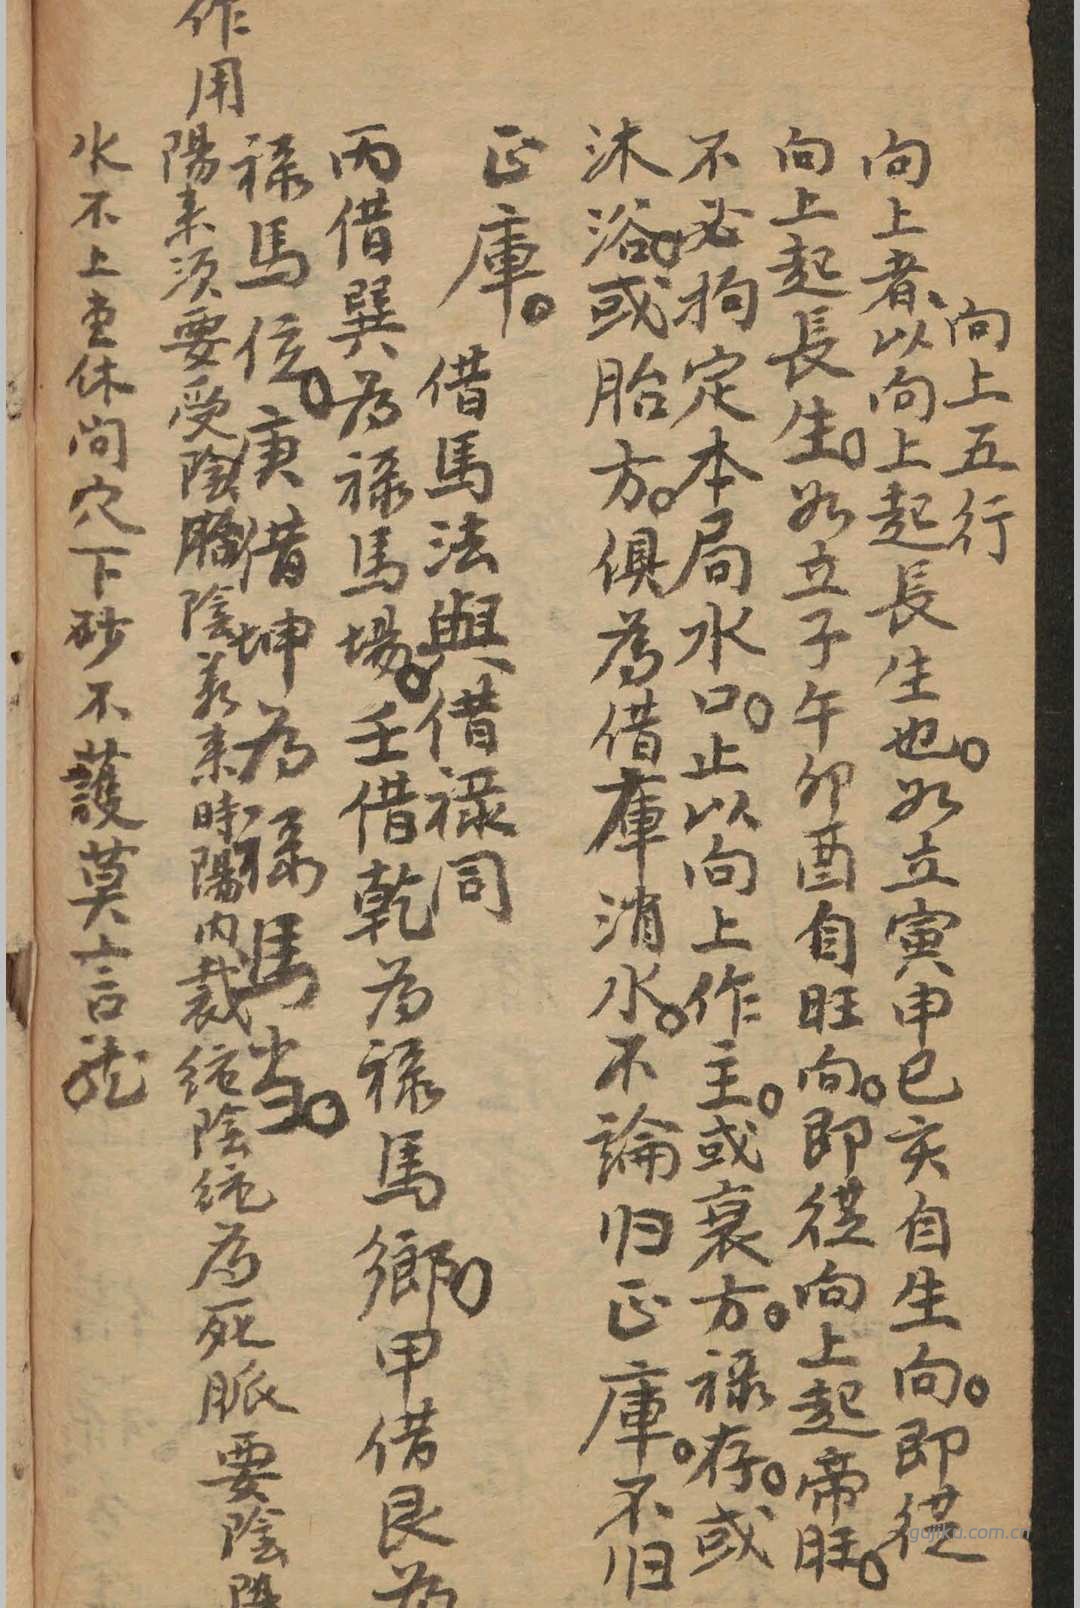 向上五行
向上者以向上起長生也。如立寅申巳亥自生向。即從
向上起長生。如立子午卯酉自旺向。即從向上起帝旺。
不必拘定本局水口。止以向上作主。或衰方。禄存。或
沐浴。或胎方。俱為借庫消水。不論归正庫。不归
正庫。
借馬法與借禄同
丙借巽為禄馬場。壬借乾為禄馬鄉。甲借艮為
禄馬位。庚借坤為禄馬当。
作用
陽来須要受陰胎陰若来時陽内裁純陰純為死脈要陰陽
水不上堂休尚穴下砂不護莫言龙
gujiku.com.cn